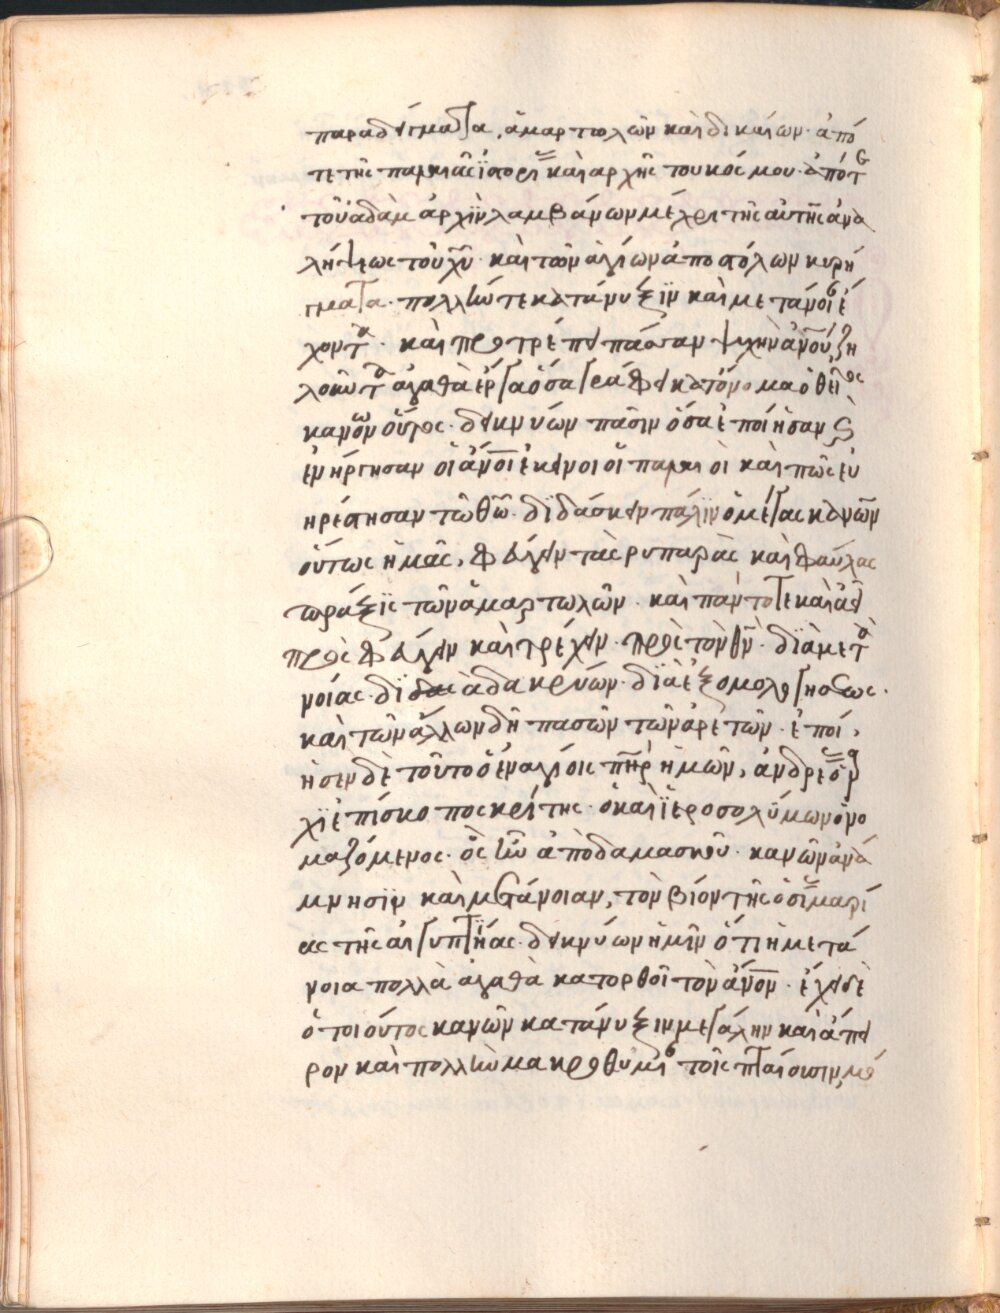 παραδείγματα, ἁμαρτωλῶν καὶ δικαίων· ἀπό
τε τῆς παλαιᾶς ἱστορί καὶ ἀρχῆς τοῦ κόσμου· ἀπό τ
τοῦ ἀδὰμ ἀρχὴν λαμβάνων μέχρι τῆς αὐτῆς ἀνα
λήψεως τοῦ χῦ καὶ τῶν ἁγίων ἀποστόλων κηρύ
γματα· πολλήν τε κατάνυξϊν καὶ μετάνοι ἐ
χοντα· καὶ προτρέπει πᾶσαν ψυχὴν ἀνοῦ ζη
λοῦν τὰ ἀγαθὰ ἔργα ὅσα γράφει κατόνομα ὁ θεῖος
κανὼν οὗτος· δεικνύων πᾶσιν ὅσα ἐποίησαν ϛ
ἐνήργησαν οἱ ἄνοι ἐκεῖνοι οἱ παλαιοὶ καὶ πῶς εὐ
ηρέστησαν τῶ θῶ· διδάσκειν πάλϊν ὁ μέγας κανῶν
οὕτως ἡμᾶς, φεύγειν τὰς ρυπαρὰς καὶ φαύλας
πράξϊς τῶν ἁμαρτωλῶν· καὶ πάντοτε καὶ ἀεὶ
πρὸς φεύγειν καὶ τρέχειν πρὸς τὸν θν· διὰ μετὰ
νοίας· δϊ ἀδακρύων· δϊὰ ἐξομολογήσεως·
καὶ τῶν ἄλλων δὴ πασῶν τῶν ἀρετῶν· ἐποί,
ησεν δὲ τοῦτο ὁ ἐν ἁγίοις πηρ ἡμῶν, ἀνδρε ὁ ἀρ
χϊεπίσκοπος κρίτης· ὁ καὶ ἱεροσολύμων ὀνο
μαζόμενος· ὃς ἦν ἀπὸ δαμασκοῦ· κανῶν ἀνὰ
μνησϊν καὶ μετάνοιαν, τὸν βίον τῆς ὁσί μαρί
ας τῆς αἰγυπτίας· δεικνύων ἡμῖν ὅτι ἡ μετά
νοια πολλὰ ἀγαθὰ κατορθοῖ τὸν ἄνον· ἔχει δὲ
ὁ τοιοῦτος κανῶν κατάνυξιν μεγάλην καὶ ἄπει
ρον καὶ πολλὴν μακροθυμί τοῖς πταίσισιν,